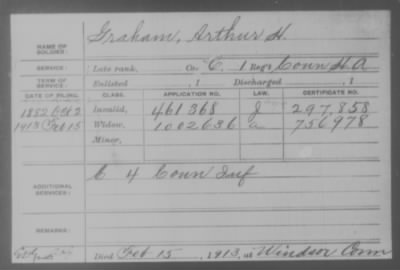 NAME OF SOLDIER: Graham, Arthur H.
SERVICE: Late rank, Co. C, 1 Reg't Conn H A
TERM OF SERVICE: Enlisted , 1 Discharged , 1
DATE OF FILING. CLASS. APPLICATION NO. LAW. CERTIFICATE NO.
1882 Oct 2 Invalid, 461368 J 297,858
1913 Feb 15 Widow, 1002636 a 756978
Minor,
ADDITIONAL SERVICES: C 4 Conn Inf
REMARKS:
Died Feb 15, 1913, at Windsor Conn